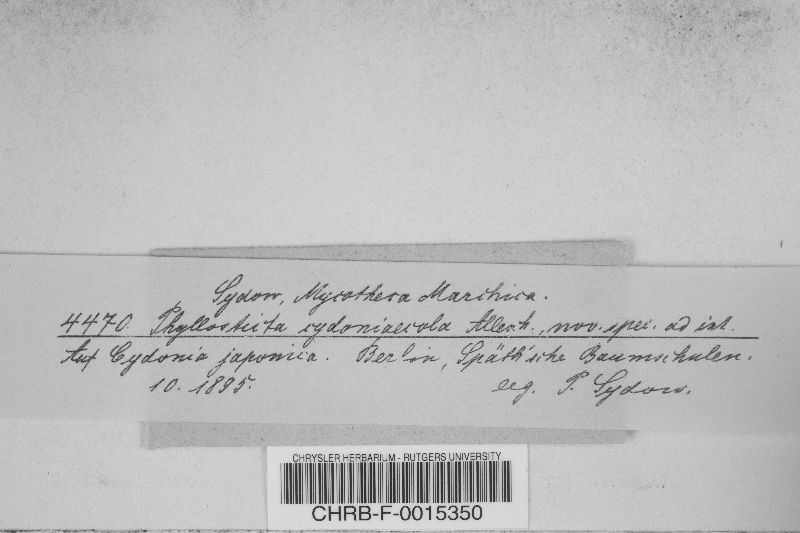 Sydow, Mycotheca Marchica.
4470. Phyllosticta cydoniaecola Allesch., nov. spec. ad int.
Auf Cydonia japonica. Berlin, Späth'sche Baumschulen.
10. 1895. leg. P. Sydow.
CHRYSLER HERBARIUM - RUTGERS UNIVERSITY
CHRB-F-0015350